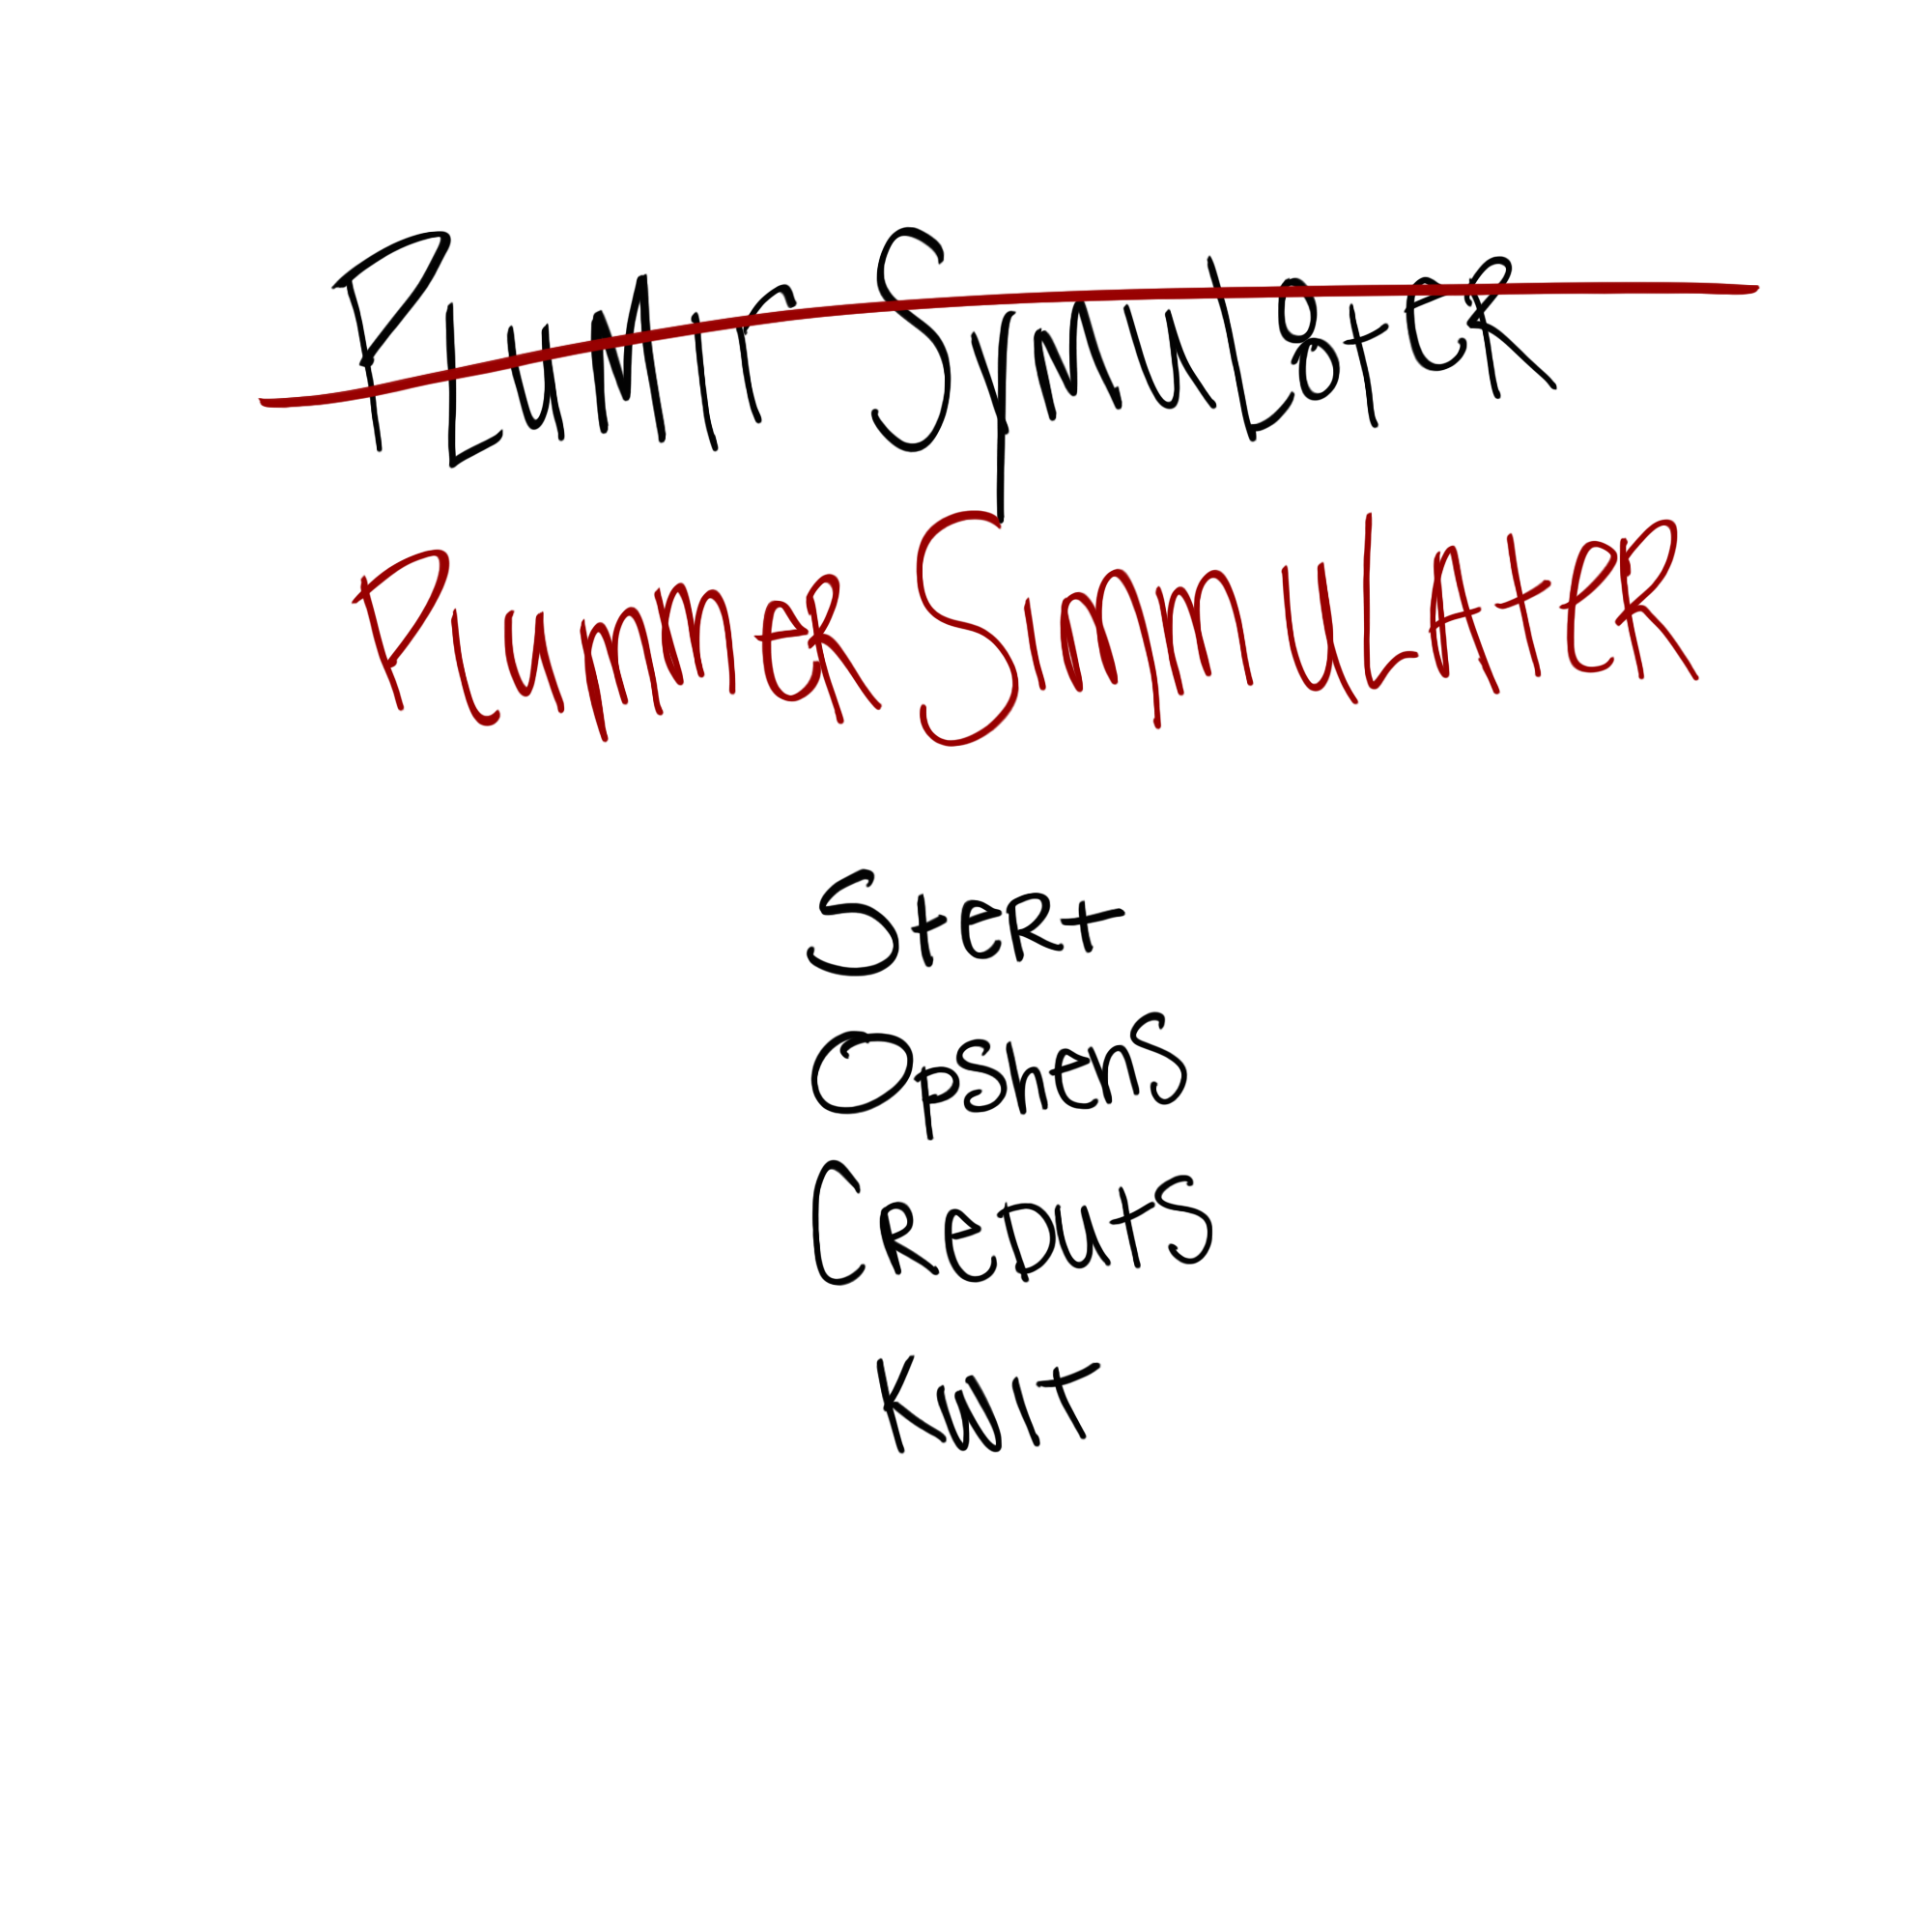 PLuMir SymuL8teR
PlummeR SimmuLAteR
SteRt
OpshenS
CReDutS
KwiT